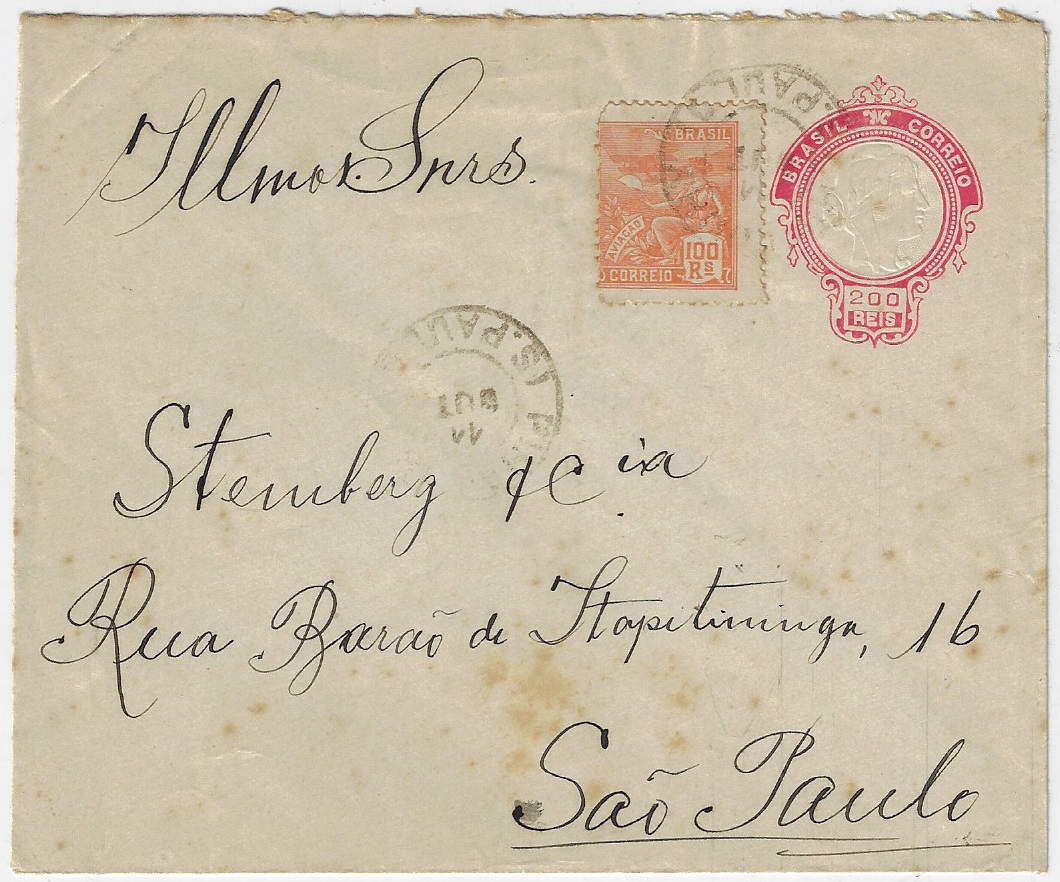 Illmos. Snrs.
BRASIL
AVIAÇÃO
100
Rs
CORREIO
S. PAUL
BRASIL CORREIO
200
REIS
S. PAUL
11
OUT
Sternberg & Cia
Rua Barão de Itapitininga, 16
São Paulo